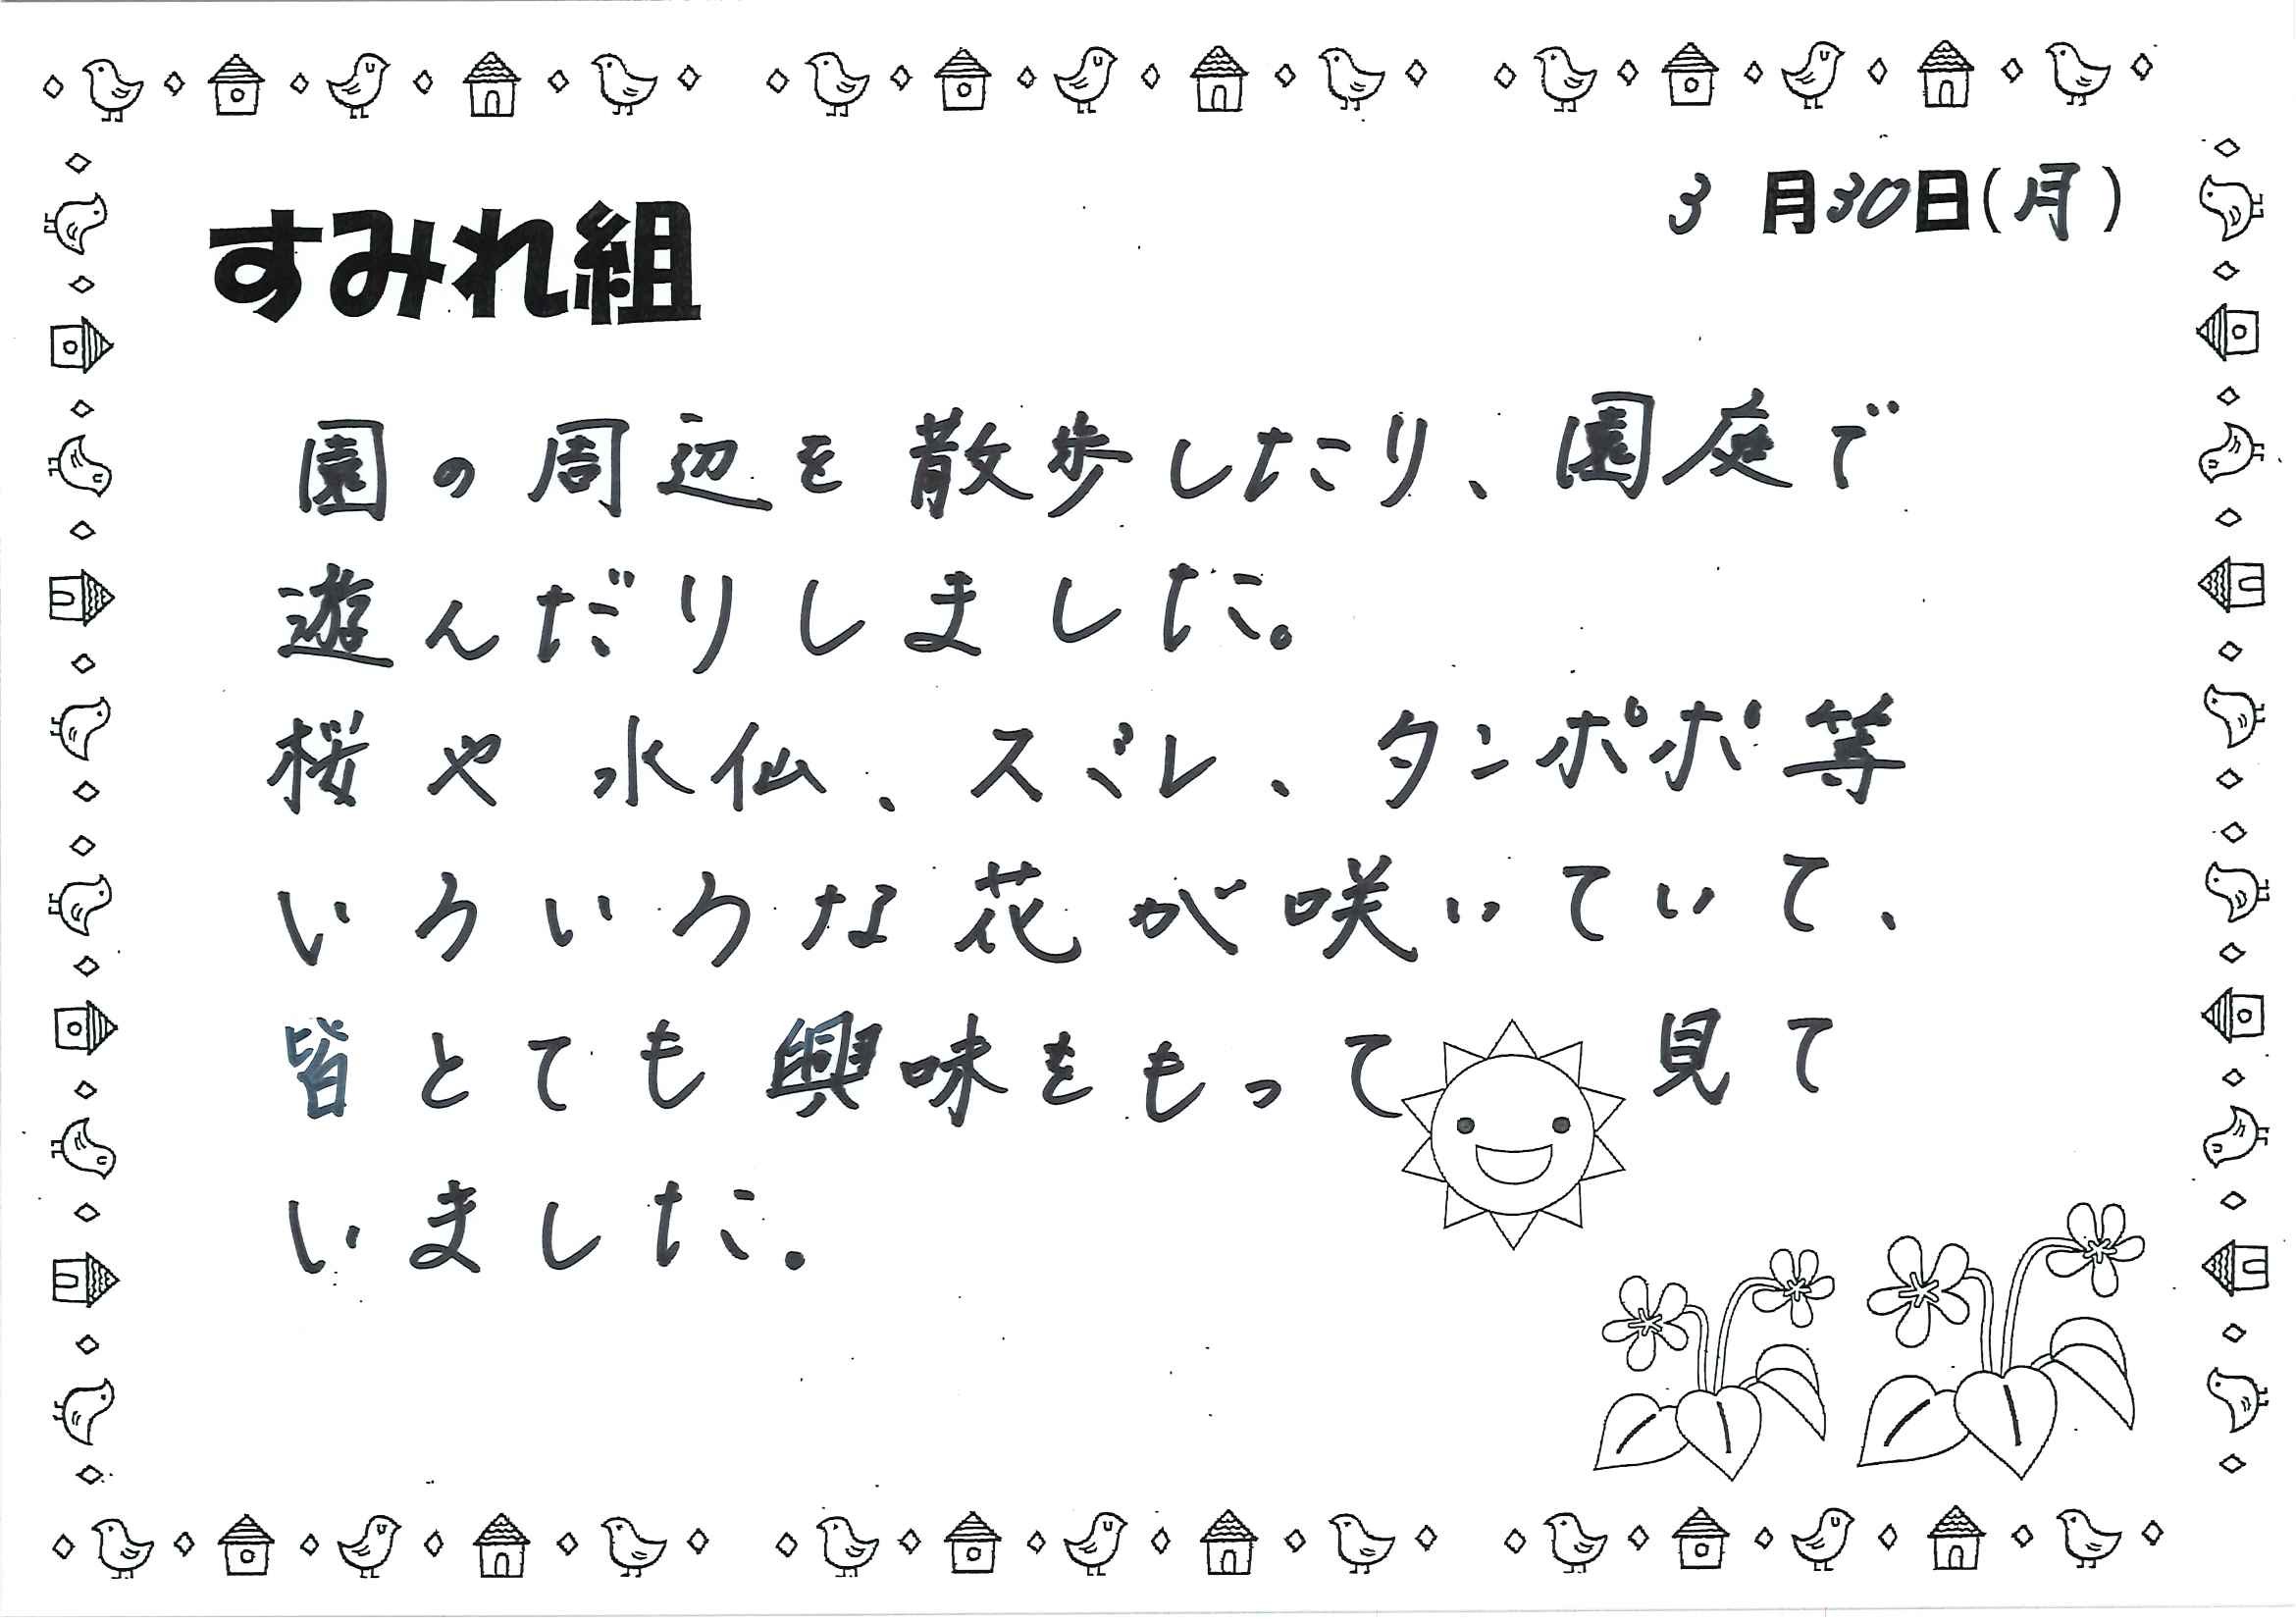 すみれ組
3月30日(月)
園の周辺を散歩したり、園庭で
遊んだりしました。
桜や水仙、スミレ、タンポポ等
いろいろな花が咲いていて、
皆とても興味をもって見て
いました。